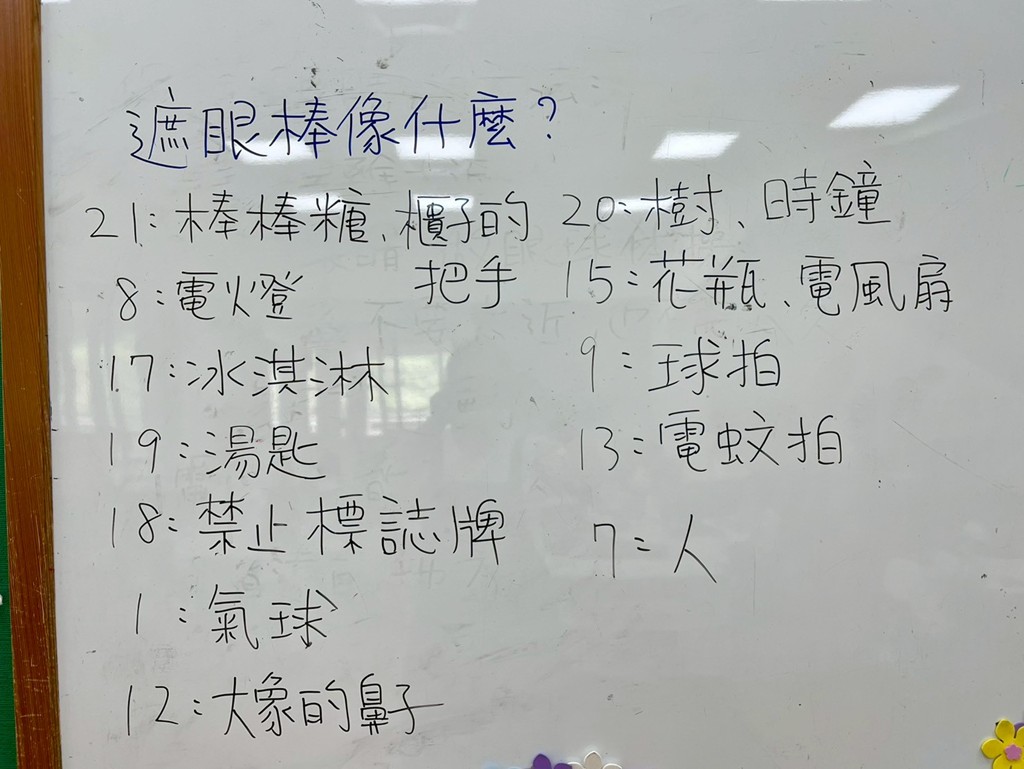 遮眼棒像什麼?
21:棒棒糖、櫃子的
把手
8:電火燈
17:冰淇淋
19:湯匙
18:禁止標誌牌
1:氣球
12:大象的鼻子
20:樹、時鐘
15:花瓶、電風扇
9:球拍
13:電蚊拍
7:人